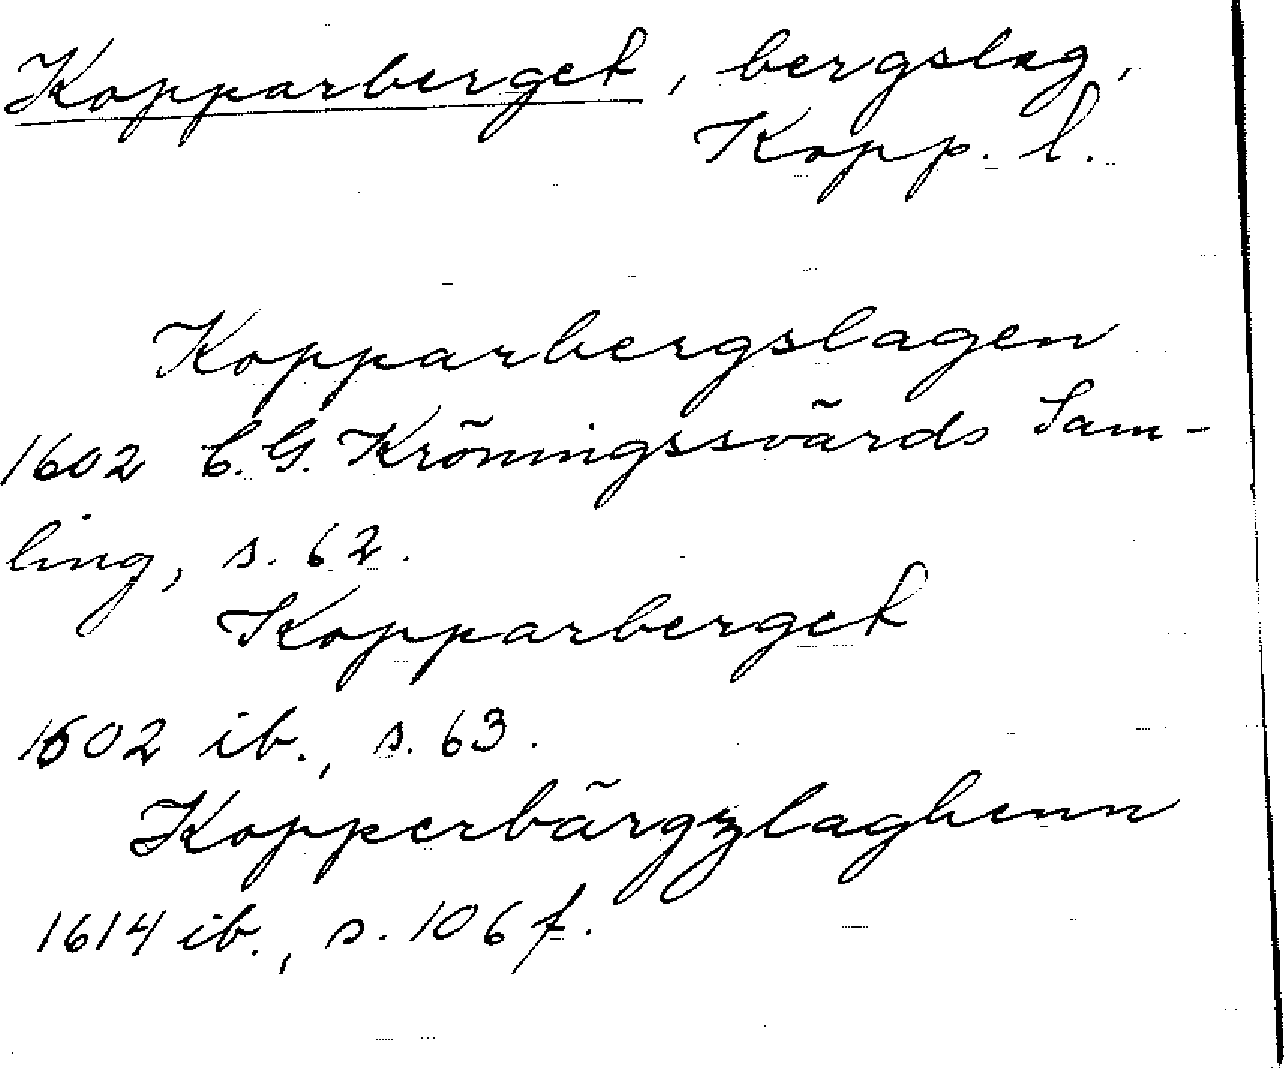 Kopparberget, bergslag,
Kopp. l.
Kopparbergslagen
1602 C. G. Kröningssvärds Sam-
ling, s. 62.
Kopparberget
1602 ib., s. 63.
Kopperbärgzlaghenn
1614 ib., s. 106 f.